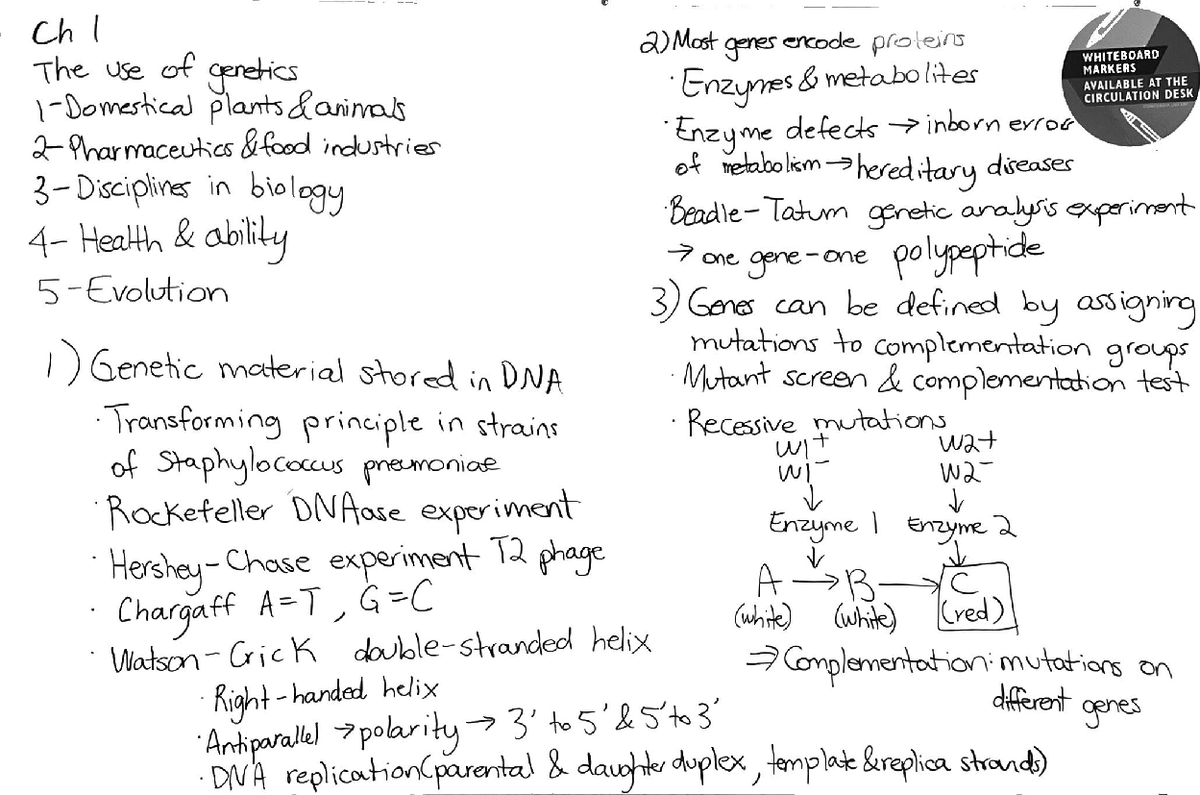 Ch 1
The use of genetics
1-Domestical plants & animals
2-Pharmaceutics & food industries
3-Disciplines in biology
4- Health & ability
5-Evolution
1) Genetic material stored in DNA
· Transforming principle in strains
of Staphylococcus pneumoniae
· Rockefeller DNAase experiment
· Hershey-Chase experiment T2 phage
· Chargaff A=T, G=C
· Watson-Crick double-stranded helix
· Right-handed helix
· Antiparallel → polarity → 3' to 5' & 5' to 3'
· DNA replication (parental & daughter duplex, template & replica strands)
2) Most genes encode proteins
· Enzymes & metabolites
· Enzyme defects → inborn error
of metabolism → hereditary diseases
· Beadle-Tatum genetic analysis experiment
→ one gene-one polypeptide
3) Genes can be defined by assigning
mutations to complementation groups
· Mutant screen & complementation test
· Recessive mutations
W1+ W2+
W1- W2-
↓ ↓
Enzyme 1 Enzyme 2
↓ ↓
A → B → C
(white) (white) (red)
⇒ Complementation: mutations on
different genes
WHITEBOARD
MARKERS
AVAILABLE AT THE
CIRCULATION DESK